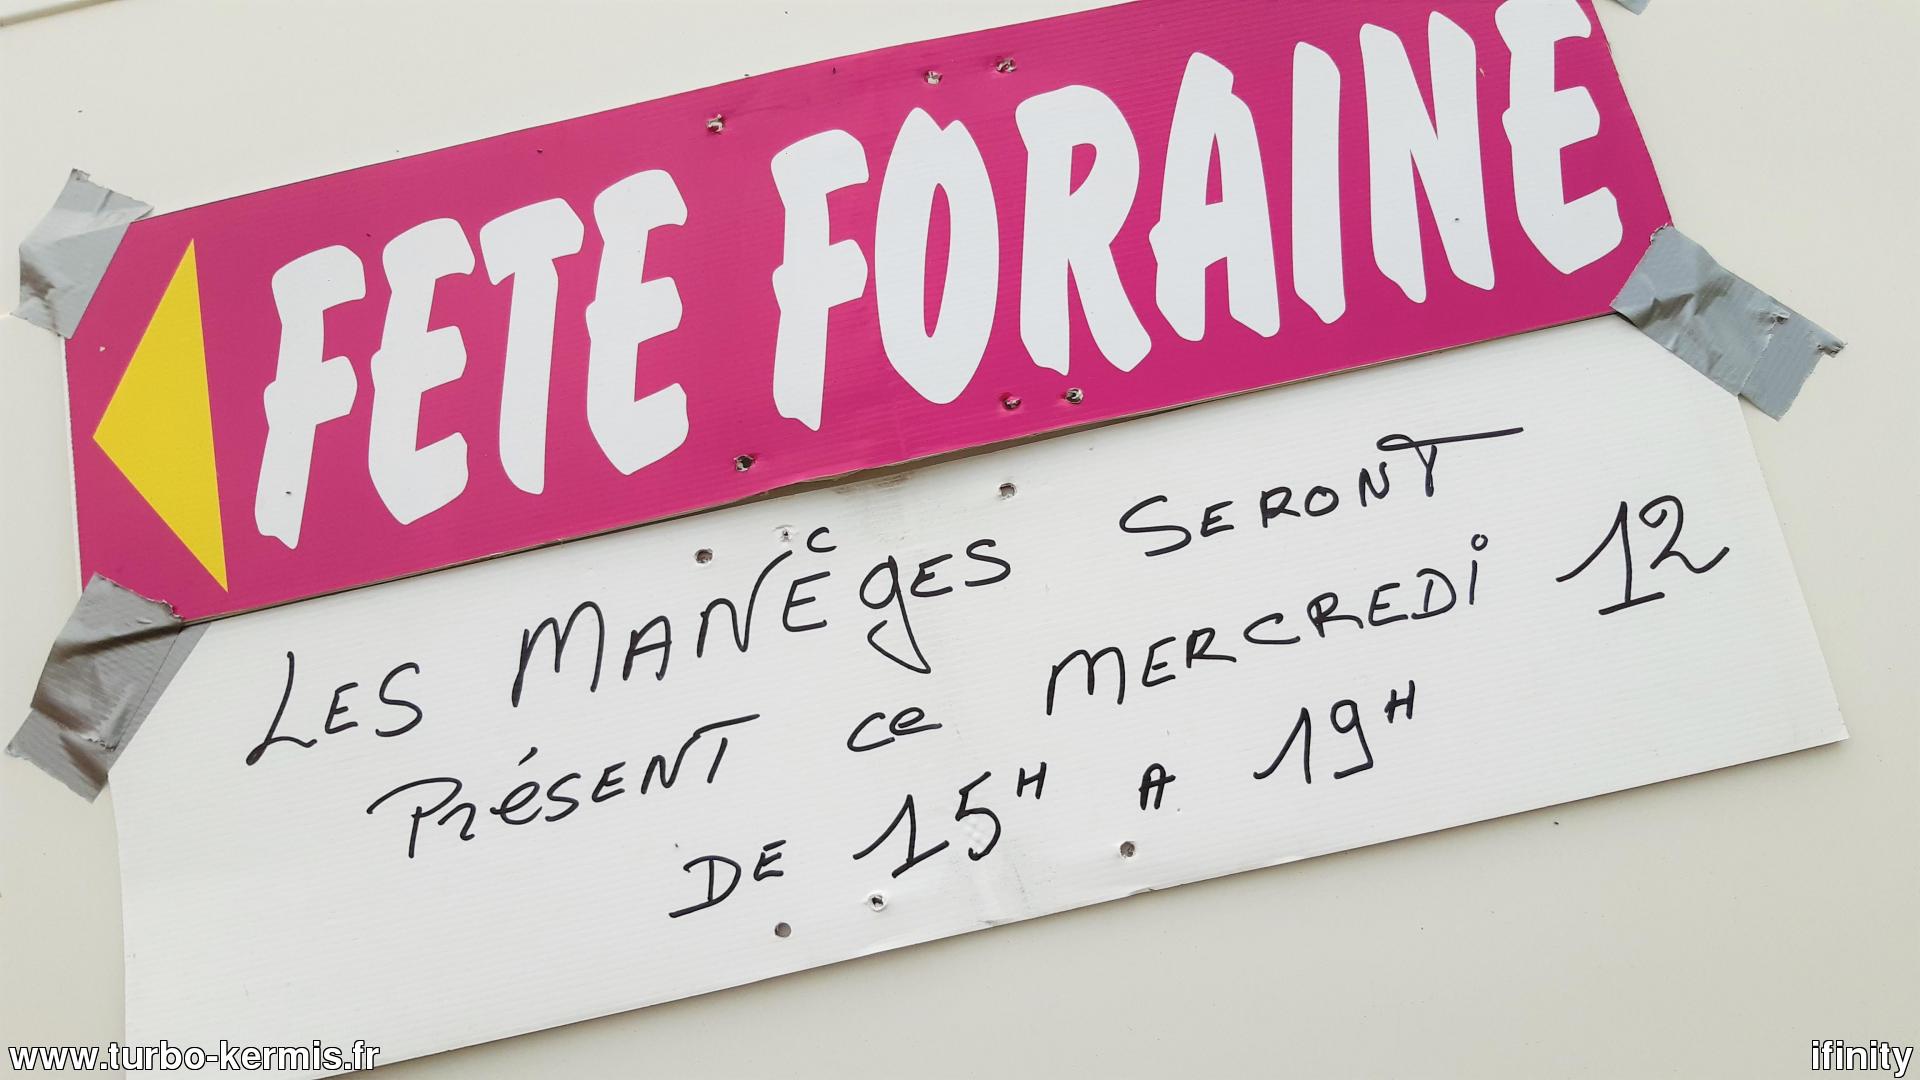 FETE FORAINE
LES MANÈGES SERONT
PRÉSENT CE MERCREDI 12
DE 15H A 19H
www.turbo-kermis.fr
ifinity